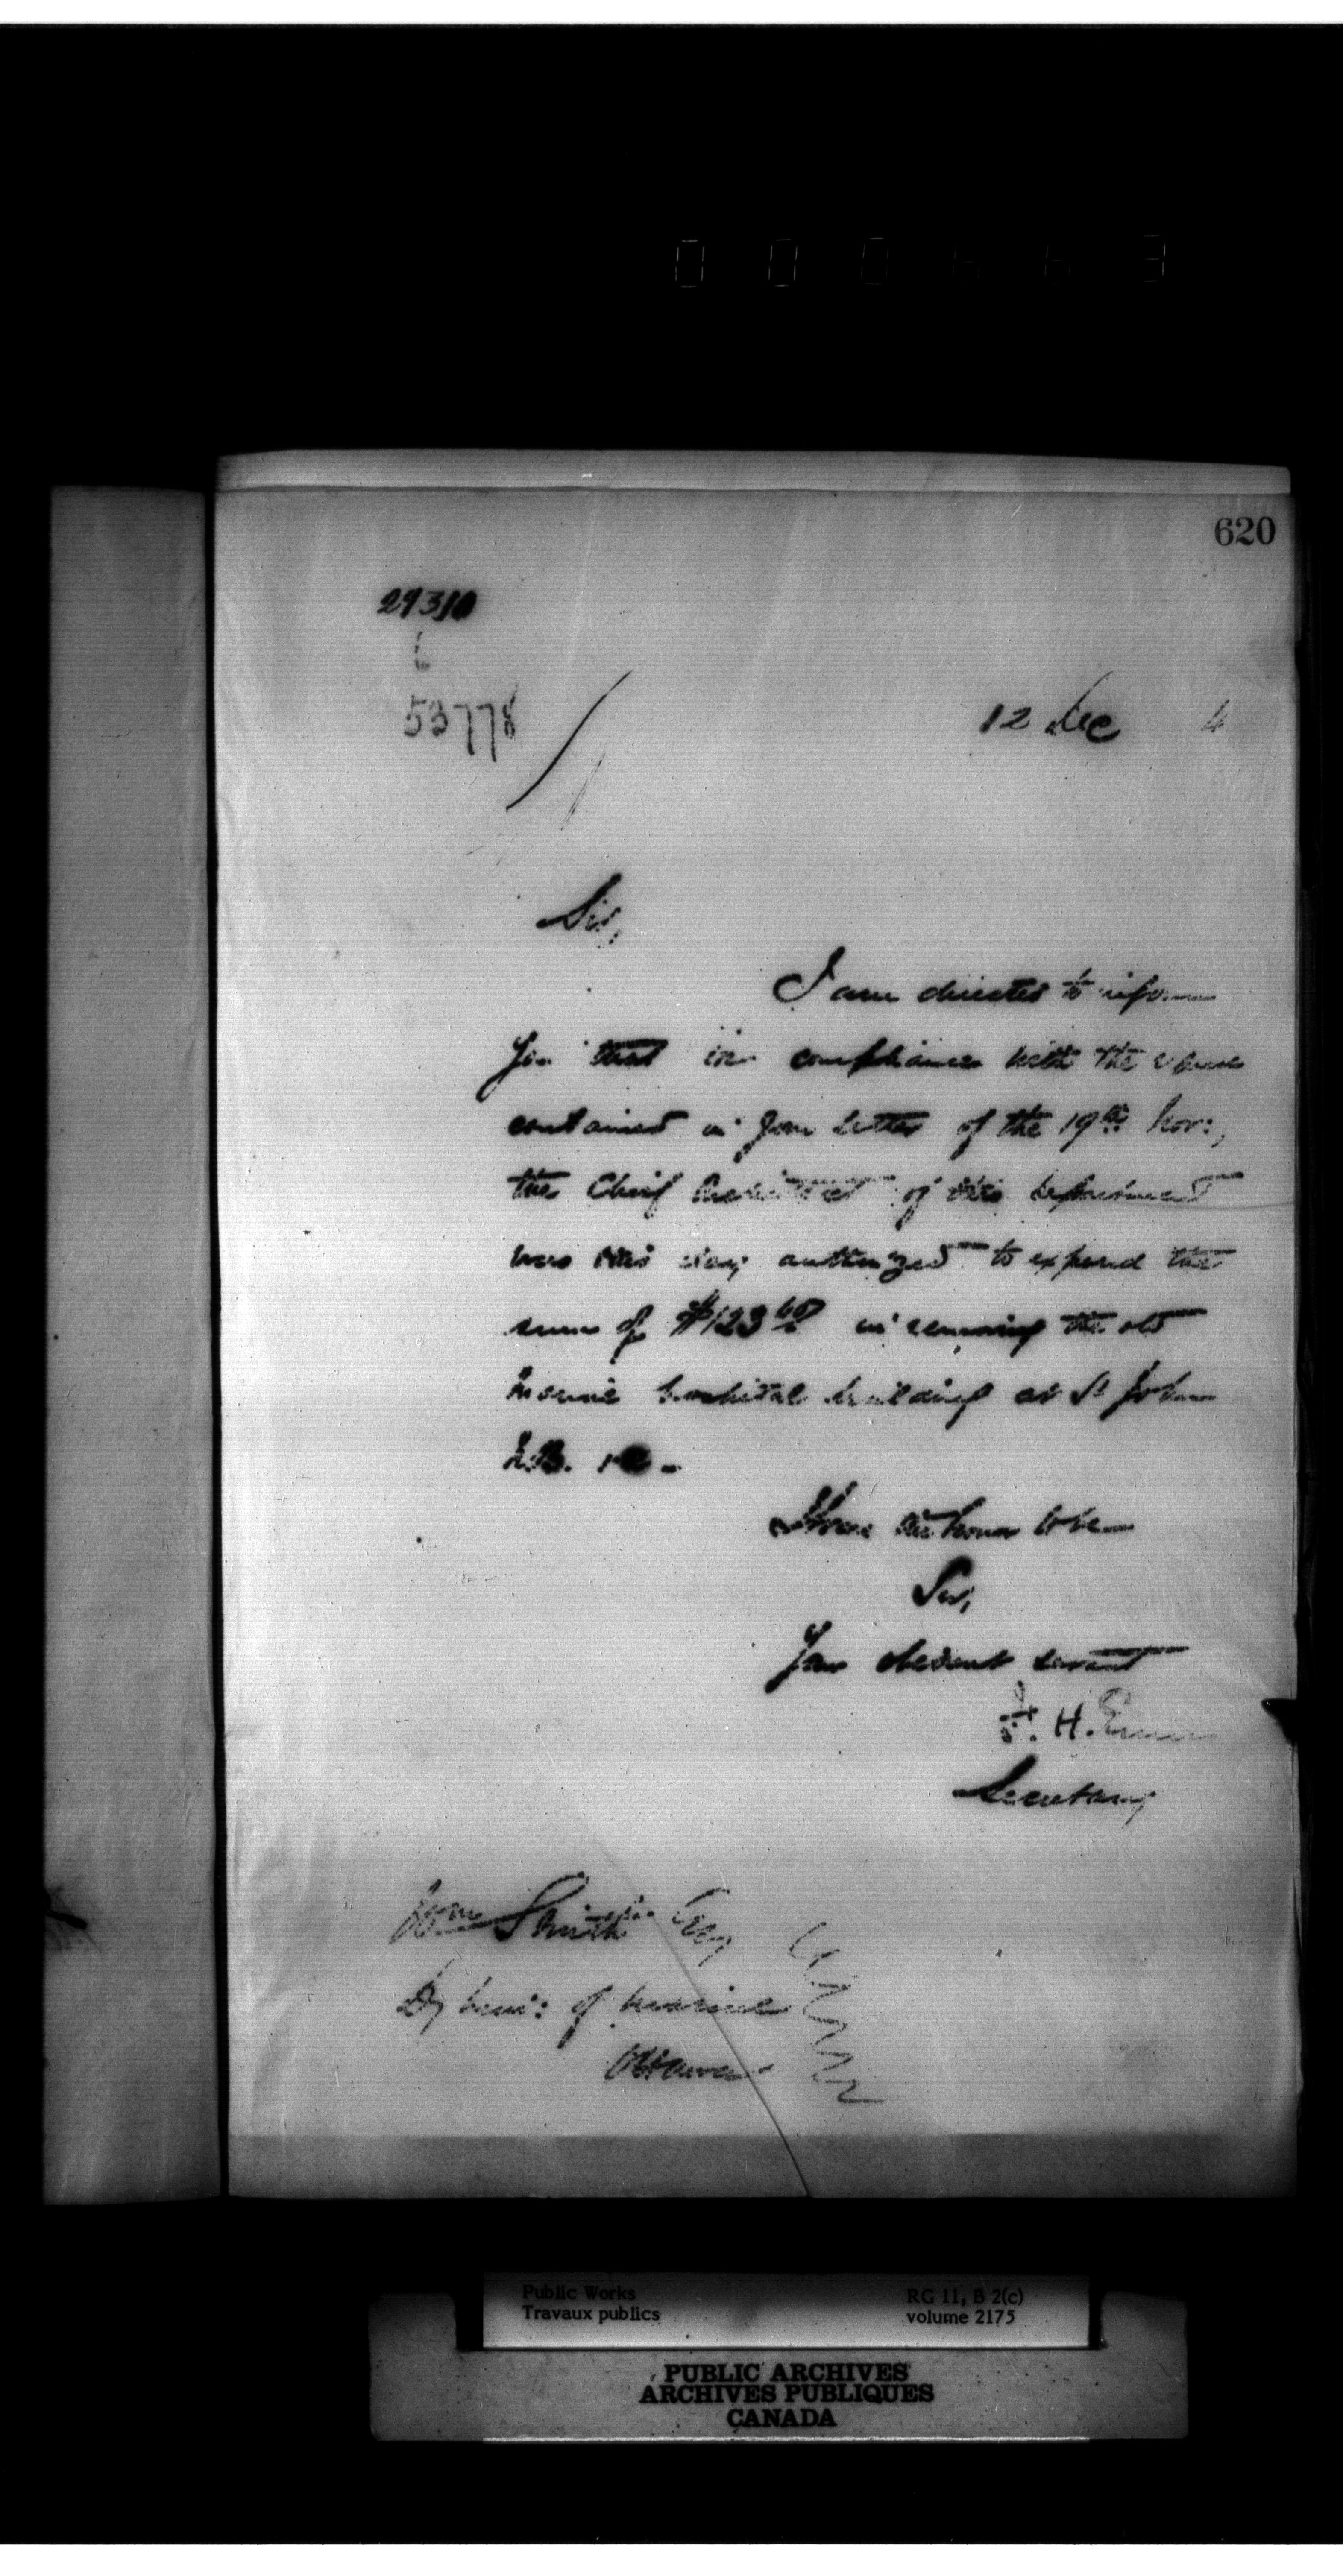 620
29310
53778
12 Dec 4
Sir,
I am directed to inform
you that in compliance with the
contained in your letter of the 19th Nov:,
the Chief Architect of this Department
was this day authorized to expend the
sum of $123 60 in removing the old
Marine hospital building at St John
N.B. &c -
I have the honor to be
Sir,
Your obedient servant
F. H. Ennis
Secretary
Wm Smith Esq
Dy Min: of Marine
Ottawa
Public Works
Travaux publics
RG 11, B 2(c)
volume 2175
PUBLIC ARCHIVES
ARCHIVES PUBLIQUES
CANADA